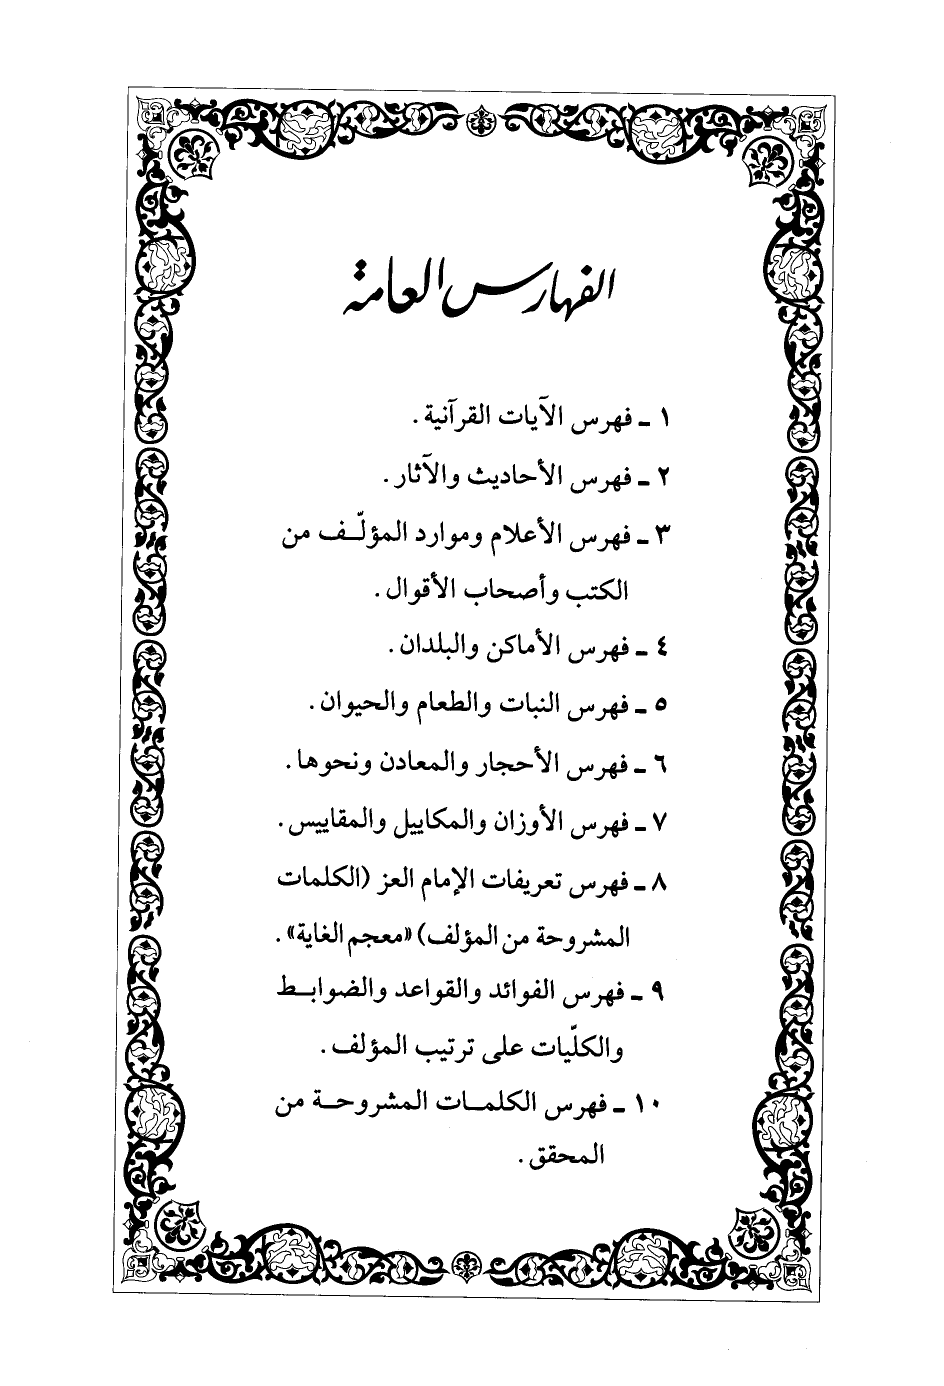 الفهارس العامة
١ ـ فهرس الآيات القرآنية .
٢ ـ فهرس الأحاديث والآثار .
٣ ـ فهرس الأعلام وموارد المؤلّـف من
الكتب وأصحاب الأقوال .
٤ ـ فهرس الأماكن والبلدان .
٥ ـ فهرس النبات والطعام والحيوان .
٦ ـ فهرس الأحجار والمعادن ونحوها .
٧ ـ فهرس الأوزان والمكاييل والمقاييس .
٨ ـ فهرس تعريفات الإمام العز (الكلمات
المشروحة من المؤلف) «معجم الغاية» .
٩ ـ فهرس الفوائد والقواعد والضوابـط
والكلّيات على ترتيب المؤلف .
١٠ ـ فهرس الكلمـات المشروحـة من
المحقق .